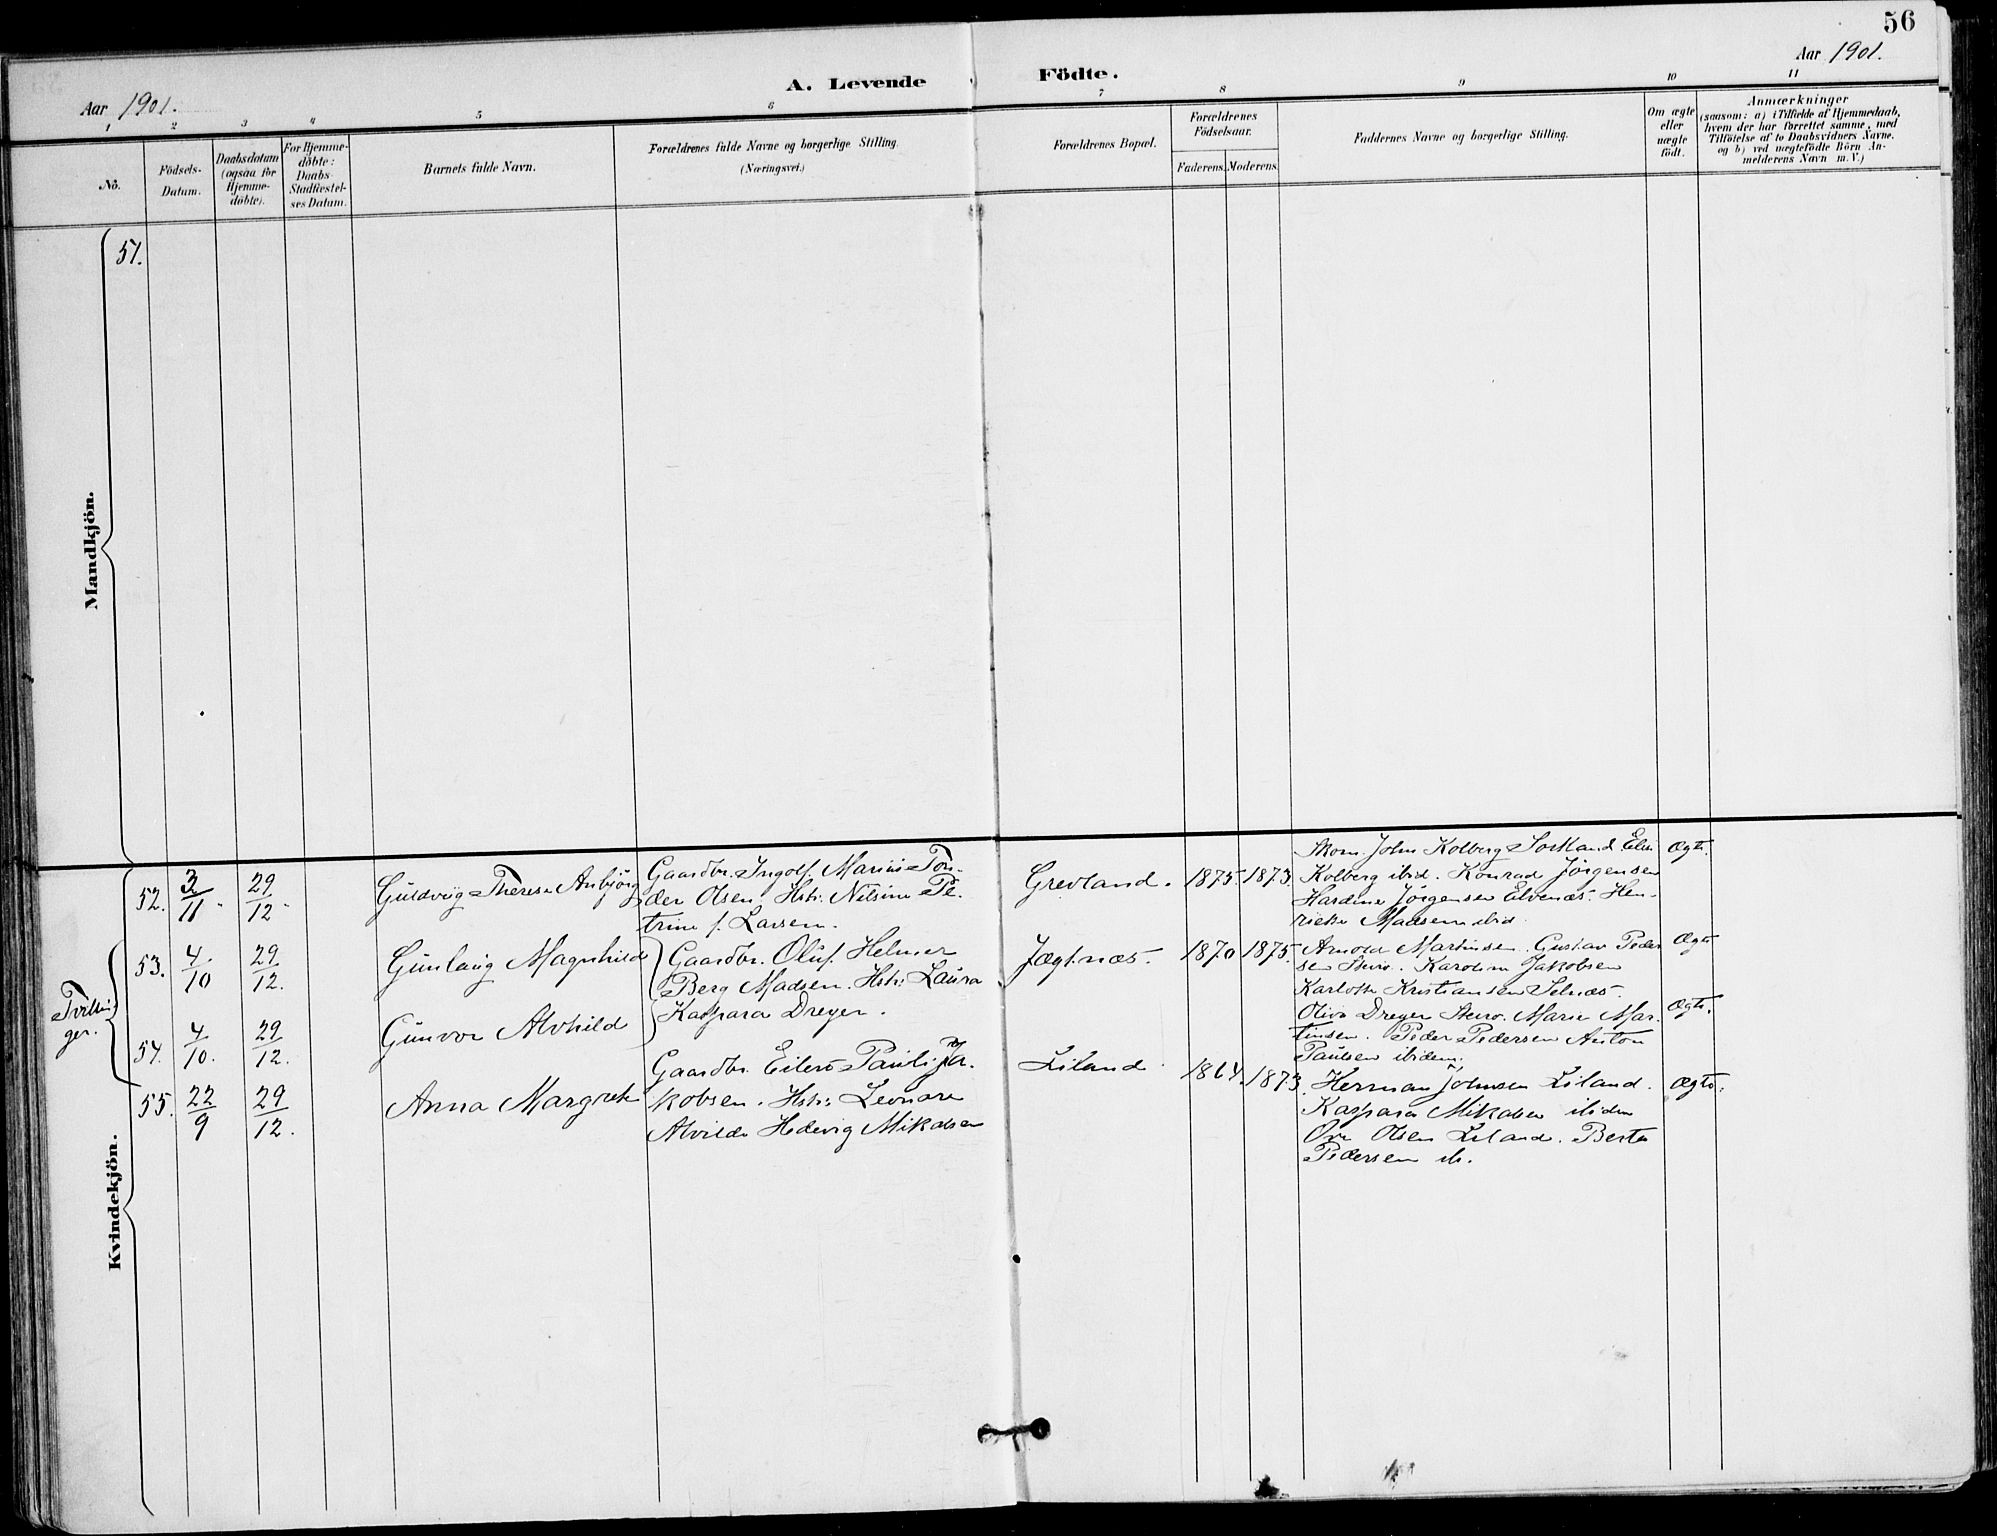 56
Aar 1901.
Aar 1901.
A. Levende Födte.
1 2 3 4 5 6 7 8 9 10 11
No.
Födsels-
Datum.
Daabsdatum
(ogsaa for
Hjemme-
döbte).
For Hjemme-
döbte:
Daabs-
Stadfæstel-
ses Datum.
Barnets fulde Navn.
Forældrenes fulde Navne og borgerlige Stilling.
(Næringsvei.)
Forældrenes Bopæl.
Forældrenes
Födselsaar.
Faderens. Moderens.
Faddernes Navne og borgerlige Stilling.
Om ægte
eller
uægte
födt.
Anmærkninger
(saasom: a) i Tilfælde af Hjemmedaab,
hvem der har forrettet samme, med
Tilföielse af to Daabsvidners Navne,
og b) ved uægtefödte Börn An-
melderens Navn m. V.)
Mandkjön.
51.
Kvindekjön.
52. 3/11 29/12. Gudvøig Therese Anbjørg
Gaardbr. Ingolf Marius Ton-
der Olsen Hstr. Nilsine Pe-
trine f. Larsen.
Grevland. 1875. 1873.
John Kolberg Sortland
Kolberg ibid. Konrad Jørgensen
Hardine Jørgensen Elvenæs. Hen-
rikke Madsen ibid.
Ægte.
Tvillin
ger.
53. 4/10 29/12. Gunlaug Magnhild
Gaardbr. Oluf Helmer
Berg Madsen. Hstr. Laura
Kaspara Dreyer.
Jægtnæs. 1870 1875.
Arnold Martinsen. Gustav Peder
sen Steiro. Karoline Jakobsen
Karlotte Kristiansen Selnæs.
Ægte
54. 4/10. 29/12. Gunvor Alvhild
Oliva Dreyer Steiro. Marie Mar-
tinsen. Peder Pedersen Anton
Paulsen ibidem.
Ægte.
55. 22/9 29/12. Anna Margrete
Gaardbr. Eilert Pauli Ja-
kobsen. Hstr. Leonore
Alvilde Hedevig Mikalsen
Liland. 1864. 1873.
Herman Johnsen Liland.
Kaspara Mikalsen ibidem
Ove Olsen Liland. Berta
Pedersen ib.
Ægte.